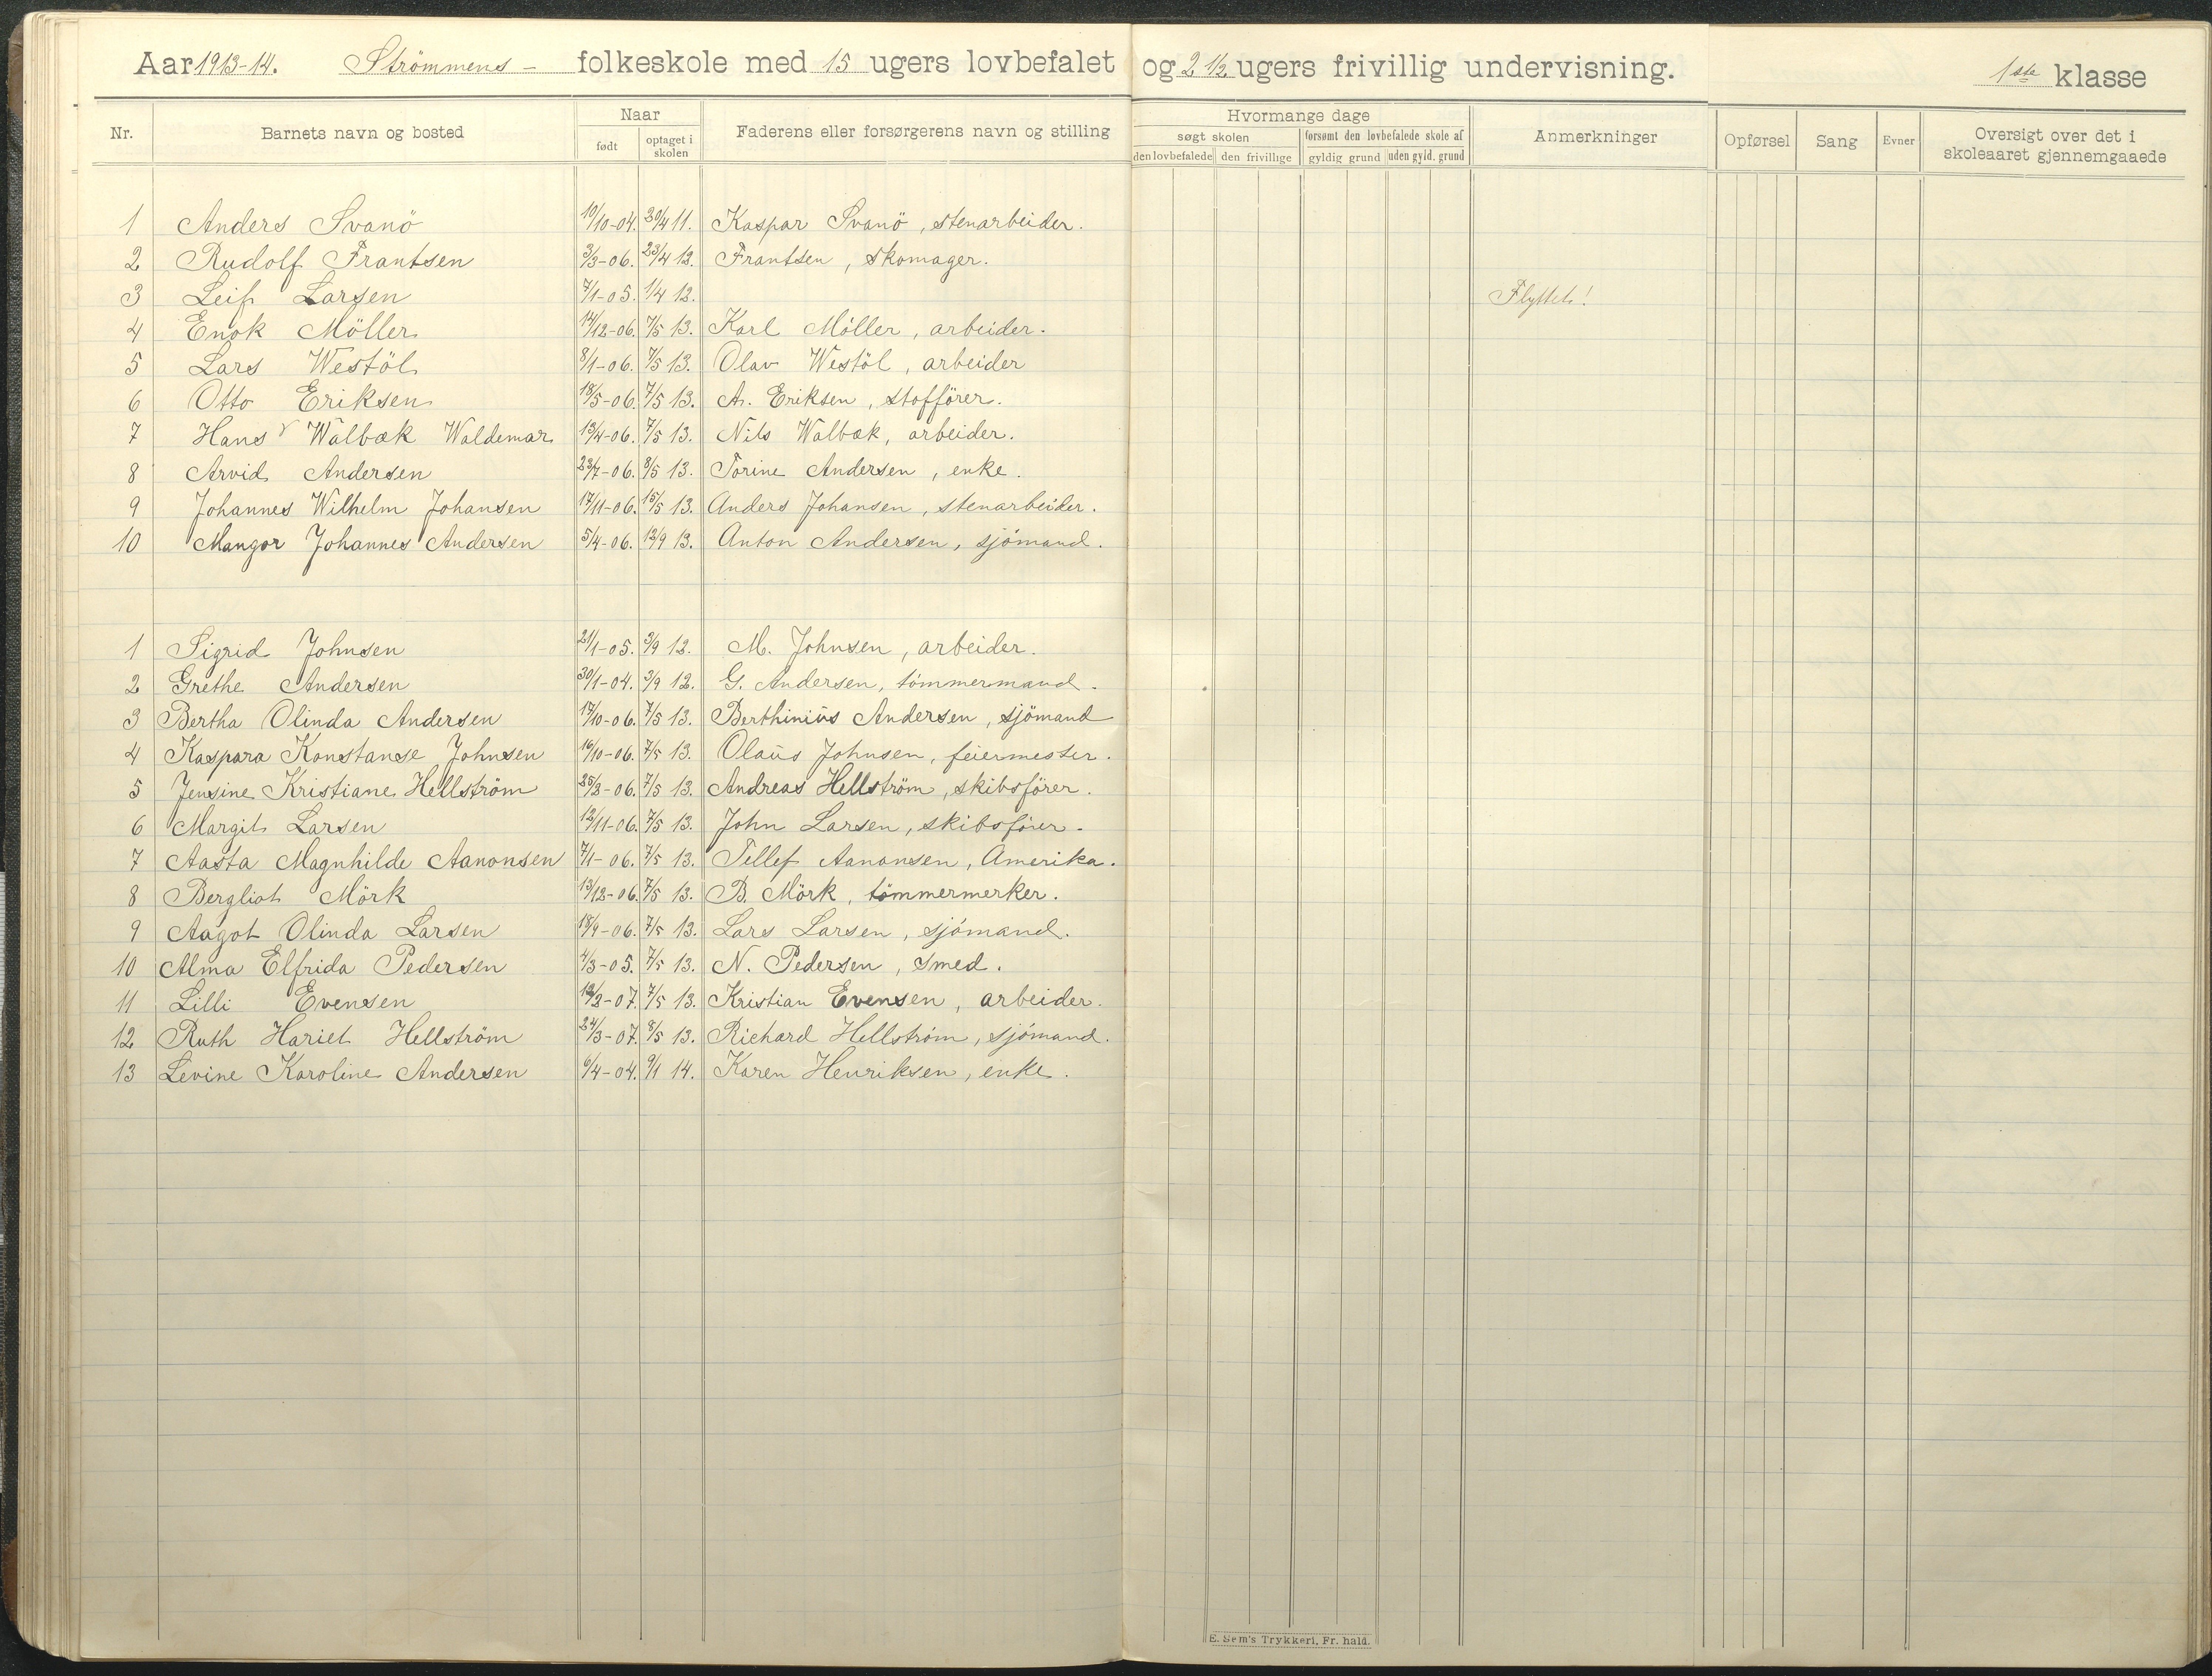 Aar 1913-14. Strömmens - folkeskole med 15 ugers lovbefalet og 2 1/2 ugers frivillig undervisning. 1ste klasse
Nr. Barnets navn og bosted Naar født optaget i skolen Faderens eller forsørgerens navn og stilling Hvormange dage søgt skolen den lovbefalede den frivillige forsømt den lovbefalede skole af gyldig grund uden gyld. grund Anmerkninger Opførsel Sang Evner Oversigt over det i skoleaaret gjennemgaaede
1 Anders Svanö 10/10-04. 20/4 11. Kaspar Svanö, stenarbeider.
2 Rudolf Frantsen 3/3-06. 23/4 12. Frantsen, skomager.
3 Leif Larsen 7/1-05. 1/4 12. Flyttet!
4 Enok Möller 14/12-06. 7/5 13. Karl Möller, arbeider.
5 Lars Westöl 8/1-06. 7/5 13. Olav Westöl, arbeider
6 Otto Eriksen 18/5-06. 7/5 13. A. Eriksen, stofförer.
7 Hans Walbæk Waldemar 13/4-06. 7/5 13. Nils Walbæk, arbeider.
8 Arvid Andersen 23/7-06. 8/5 13. Torine Andersen, enke.
9 Johannes Wilhelm Johansen 17/11-06. 15/5 13. Anders Johansen, stenarbeider.
10 Mangor Johannes Andersen 5/4-06. 12/9 13. Anton Andersen, sjömand.
1 Sigrid Johnsen 21/1-05. 3/9 12. M. Johnsen, arbeider.
2 Grethe Andersen 30/1-04. 3/9 12. G. Andersen, tömmermand.
3 Bertha Olinda Andersen 17/10-06. 7/5 13. Berthinius Andersen, sjömand
4 Kaspara Konstanse Johnsen 16/10-06. 7/5 13. Olaus Johnsen, feiermester.
5 Jensine Kristiane Hellström 25/2-06. 7/5 13. Andreas Hellström, skibsförer.
6 Margit Larsen 12/11-06. 7/5 13. John Larsen, skibsförer.
7 Aasta Magnhilde Aanonsen 7/1-06. 7/5 13. Tellef Aanonsen, Amerika.
8 Bergliot Mörk 13/12-06. 7/5 13. B. Mörk, tömmermerker.
9 Aagot Olinda Larsen 18/9-06. 7/5 13. Lars Larsen, sjömand.
10 Alma Elfrida Pedersen 4/3-05. 7/5 13. N. Pedersen, smed.
11 Lilli Evensen 12/2-07. 7/5 13. Kristian Evensen, arbeider.
12 Ruth Hariet Hellström 24/3-07. 8/5 13. Richard Hellström, sjömand.
13 Levine Karoline Andersen 6/4-04. 9/1 14. Karen Henriksen, enke.
E. Sem's Trykkeri, Fr. hald.